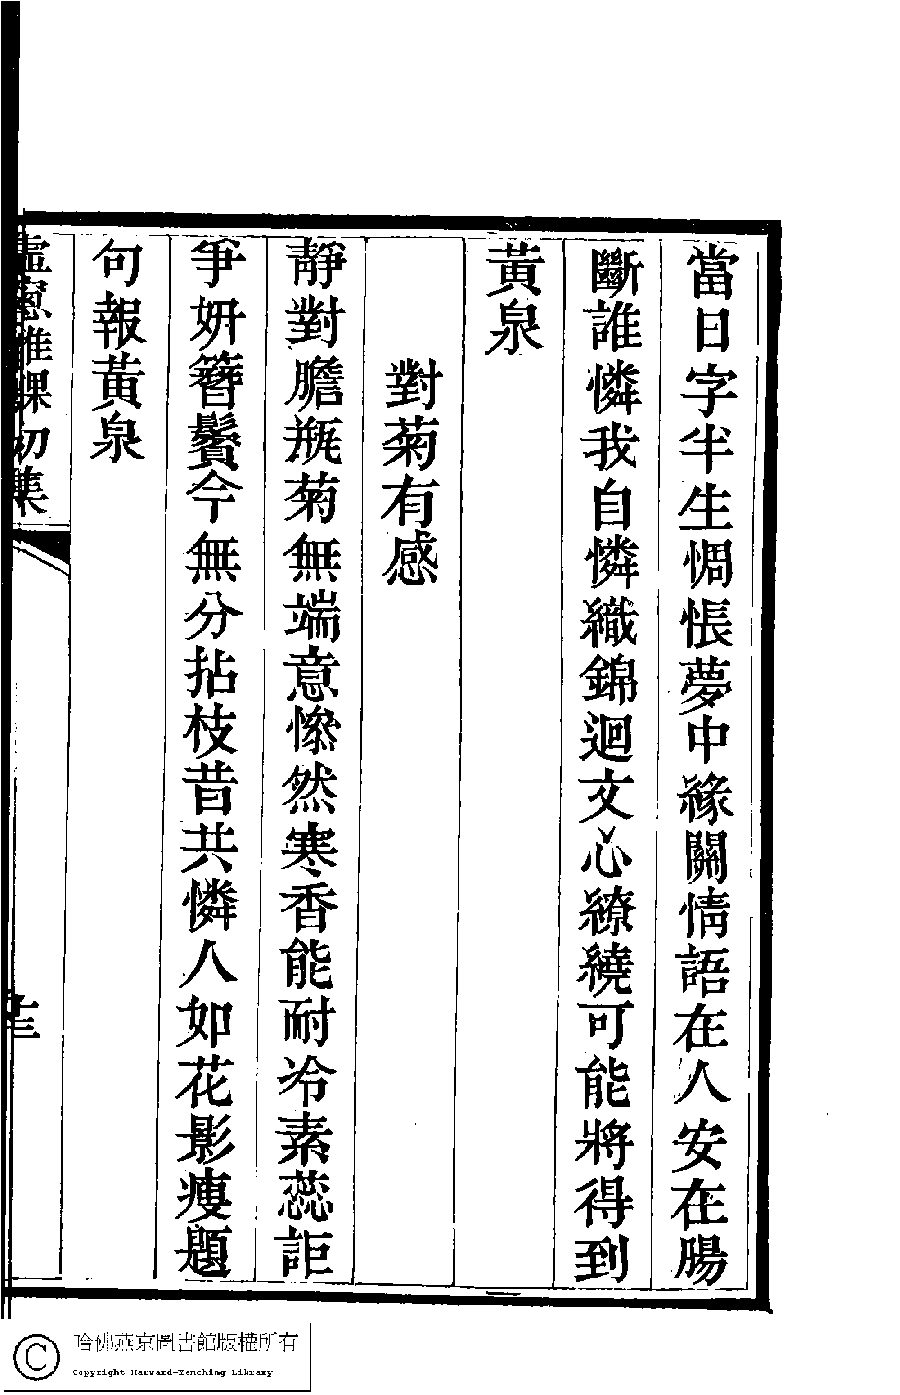 當日字半生惆悵夢中緣關情語在人安在腸
斷誰憐我自憐織錦迴文心繚繞可能將得到
黃泉
對菊有感
靜對膽瓶菊無端意慘然寒香能耐冷素蕊詎
爭妍簪鬢今無分拈枝昔共憐人如花影瘦題
句報黃泉
虛窗雅課初集
哈佛燕京圖書館版權所有
Copyright Harvard-Yenching Library